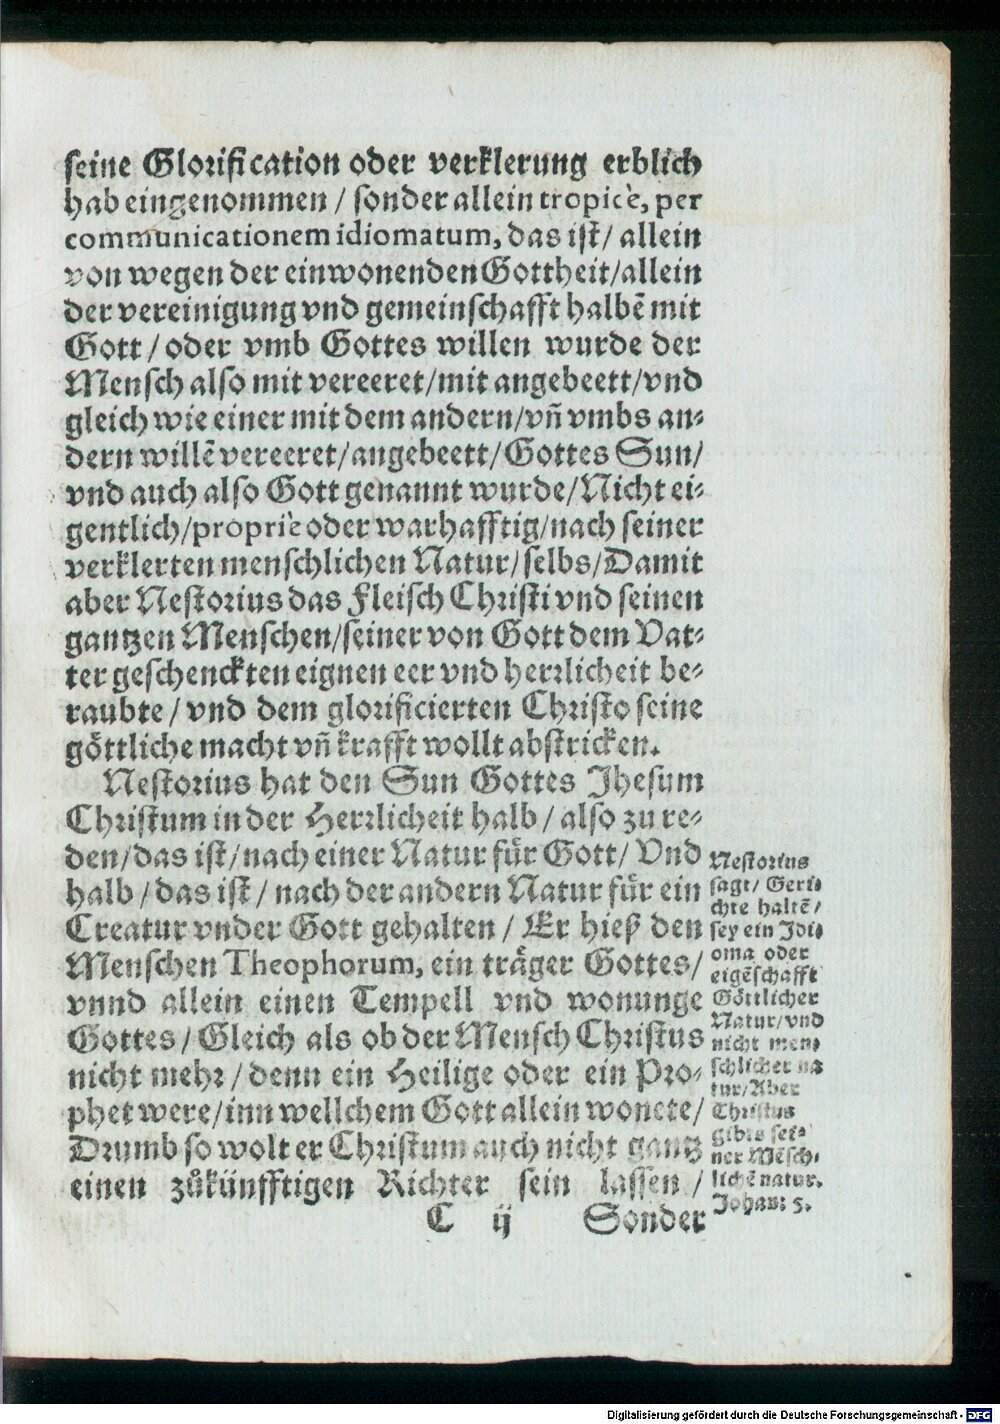 seine Glorification oder verklerung erblich
hab eingenommen / sonder allein tropicè, per
communicationem idiomatum, das ist / allein
von wegen der einwonenden Gottheit/allein
der vereinigung vnd gemeinschafft halbẽ mit
Gott / oder vmb Gottes willen wurde der
Mensch also mit vereeret/mit angebeett/vnd
gleich wie einer mit dem andern/vñ vmbs an⸗
dern willẽ vereeret/angebeett/Gottes Sun/
vnd auch also Gott genannt wurde/Nicht ei⸗
gentlich/propriè oder warhafftig/nach seiner
verklerten menschlichen Natur/selbs/Damit
aber Nestorius das Fleisch Christi vnd seinen
gantzen Menschen/seiner von Gott dem Vat⸗
ter geschenckten eignen eer vnd herrlicheit be⸗
raubte / vnd dem glorificierten Christo seine
göttliche macht vñ krafft wollt abstricken.
Nestorius hat den Sun Gottes Jhesum
Christum in der Herrlicheit halb / also zu re⸗
den/das ist/nach einer Natur für Gott/ Vnd
halb / das ist / nach der andern Natur für ein
Creatur vnder Gott gehalten / Er hieß den
Menschen Theophorum, ein träger Gottes/
vnnd allein einen Tempell vnd wonunge
Gottes / Gleich als ob der Mensch Christus
nicht mehr / denn ein Heilige oder ein Pro⸗
phet were/inn wellchem Gott allein wonete/
Drumb so wolt er Christum auch nicht gantz
einen zůkünfftigen Richter sein lassen /
C ij Sonder
Nestorius
sagt/ Geri⸗
chte haltẽ/
sey ein Idi⸗
oma oder
eigẽschafft
Göttlicher
Natur/vnd
nicht men⸗
schlicher na
tur/Aber
Christus
gibts sei⸗
ner Mẽsch⸗
lichẽ natur.
Johan: 5.
Digitalisierung gefördert durch die Deutsche Forschungsgemeinschaft - DFG